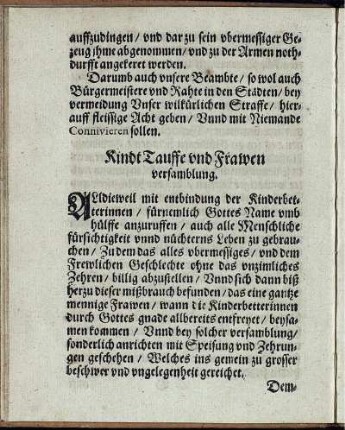 auffzudingen / vnd dar zu sein vbermessiger Ge-
zeug jhme abgenommen / vnd zu der Armen noth-
durfft angekeret werden.
Darumb auch vnsere Beambte / so wol auch
Bürgermeistere vnd Rahte in den Städten / bey
vermeidung Vnser wilkürlichen Straffe / hier-
auff fleissige Acht geben / Vnnd mit Niemande
Connivieren sollen.
Kindt Tauffe vnd Frawen
versamblung.
ALldieweil mit entbindung der Kinderbet-
terinnen / fürnemlich Gottes Name vmb
hülffe anzuruffen / auch alle Menschliche
fürsichtigkeit vnnd nüchterns Leben zu gebrau-
chen / Zu dem das alles vbermessiges / vnd dem
Frewlichen Geschlechte ohne das vnzimliches
Zehren / billig abzustellen / Vnnd sich dann biß
herzu dieser mißbrauch befunden / das eine gantze
mennige Frawen / wann die Kinderbetterinnen
durch Gottes gnade allbereits entfreyet / beysa-
men kommen / Vnnd bey solcher versamblung /
sonderlich anrichten mit Speisung vnd Zehrun-
gen geschehen / Welches ins gemein zu grosser
beschwer vnd vngelegenheit gereichet.
Dem-